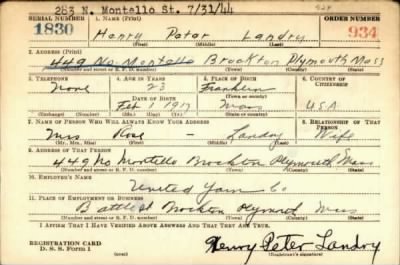 283 N. Montello St. 7/31/44
SERIAL NUMBER 1. NAME (Print) ORDER NUMBER
1830 Henry Peter Landry 934
(First) (Middle) (Last)
2. ADDRESS (Print)
449 No Montello Brockton Plymouth Mass
(Number and street or R. F. D. number) (Town) (County) (State)
3. TELEPHONE 4. AGE IN YEARS 5. PLACE OF BIRTH 6. COUNTRY OF CITIZENSHIP
None 23 Franklin
DATE OF BIRTH (Town or county)
Feb 1 1917 Mass U.S.A.
(Exchange) (No.) (Mo.) (Day) (Yr.) (State or country)
7. NAME OF PERSON WHO WILL ALWAYS KNOW YOUR ADDRESS 8. RELATIONSHIP OF THAT PERSON
Mrs Rose — Landry Wife
(Mr., Mrs., Miss) (First) (Middle) (Last)
9. ADDRESS OF THAT PERSON
449 No Montello Brockton Plymouth Mass
(Number and street or R. F. D. number) (Town) (County) (State)
10. EMPLOYER'S NAME
United Co
11. PLACE OF EMPLOYMENT OR BUSINESS
Battles St Brockton Plymouth Mass
(Number and street or R. F. D. number) (Town) (County) (State)
I AFFIRM THAT I HAVE VERIFIED ABOVE ANSWERS AND THAT THEY ARE TRUE.
REGISTRATION CARD
D. S. S. Form 1 Henry Peter Landry
(Registrant's signature)